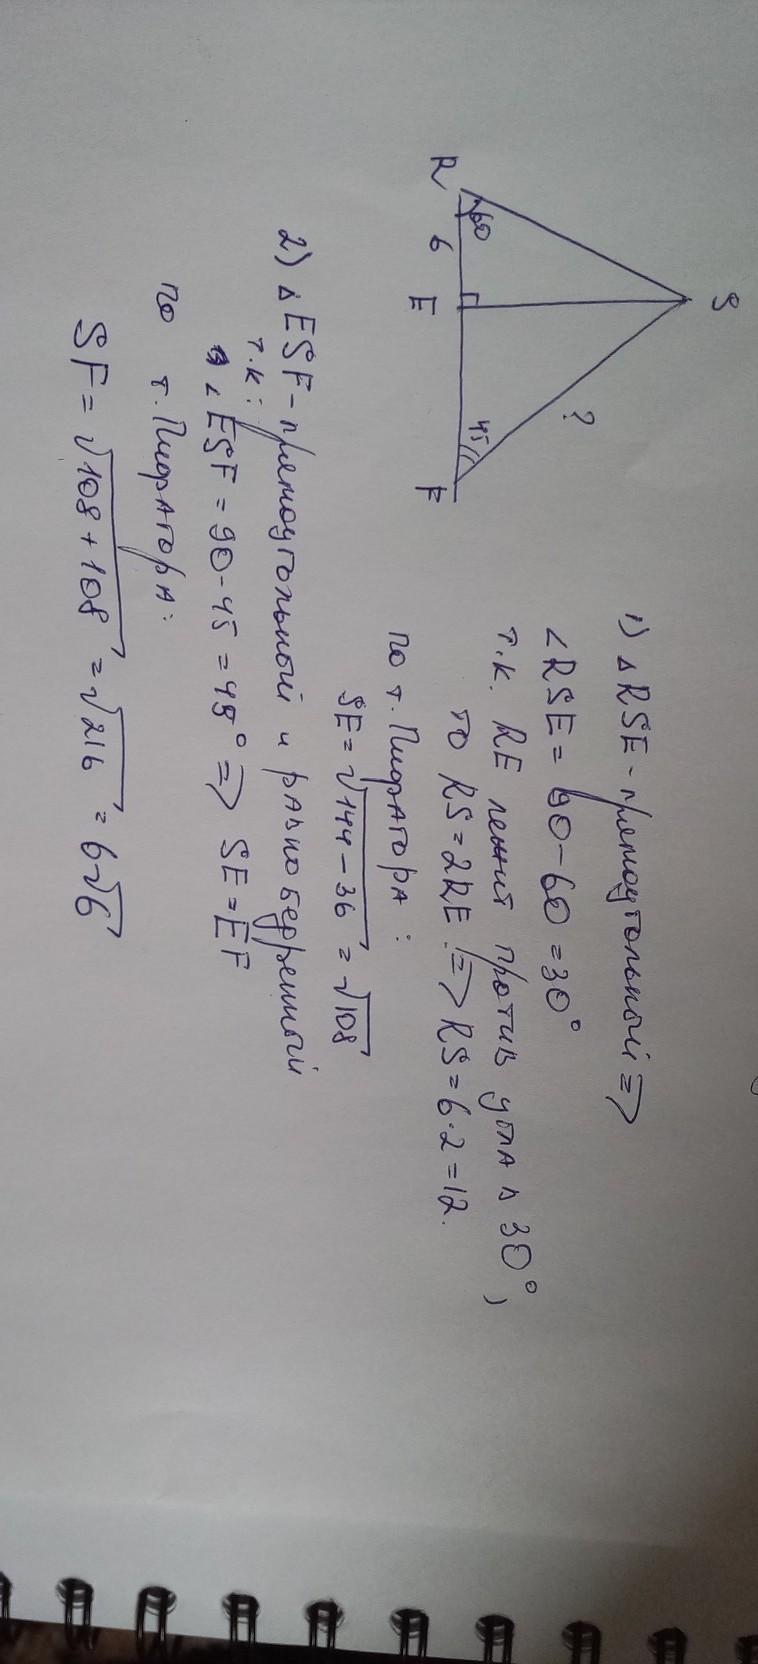 S
R
60
6
E
?
45
F
1) △RSE - прямоугольный =>
∠RSE = 90-60 = 30°
т.к. RE лежит против угла в 30°,
то RS = 2RE => RS = 6·2 = 12.
по т. Пифагора:
SE = √144-36 = √108
2) △ESF - прямоугольный и равнобедренный
т.к:
∠ESF = 90-45 = 45° => SE = EF
по т. Пифагора:
SF = √108+108 = √216 = 6√6